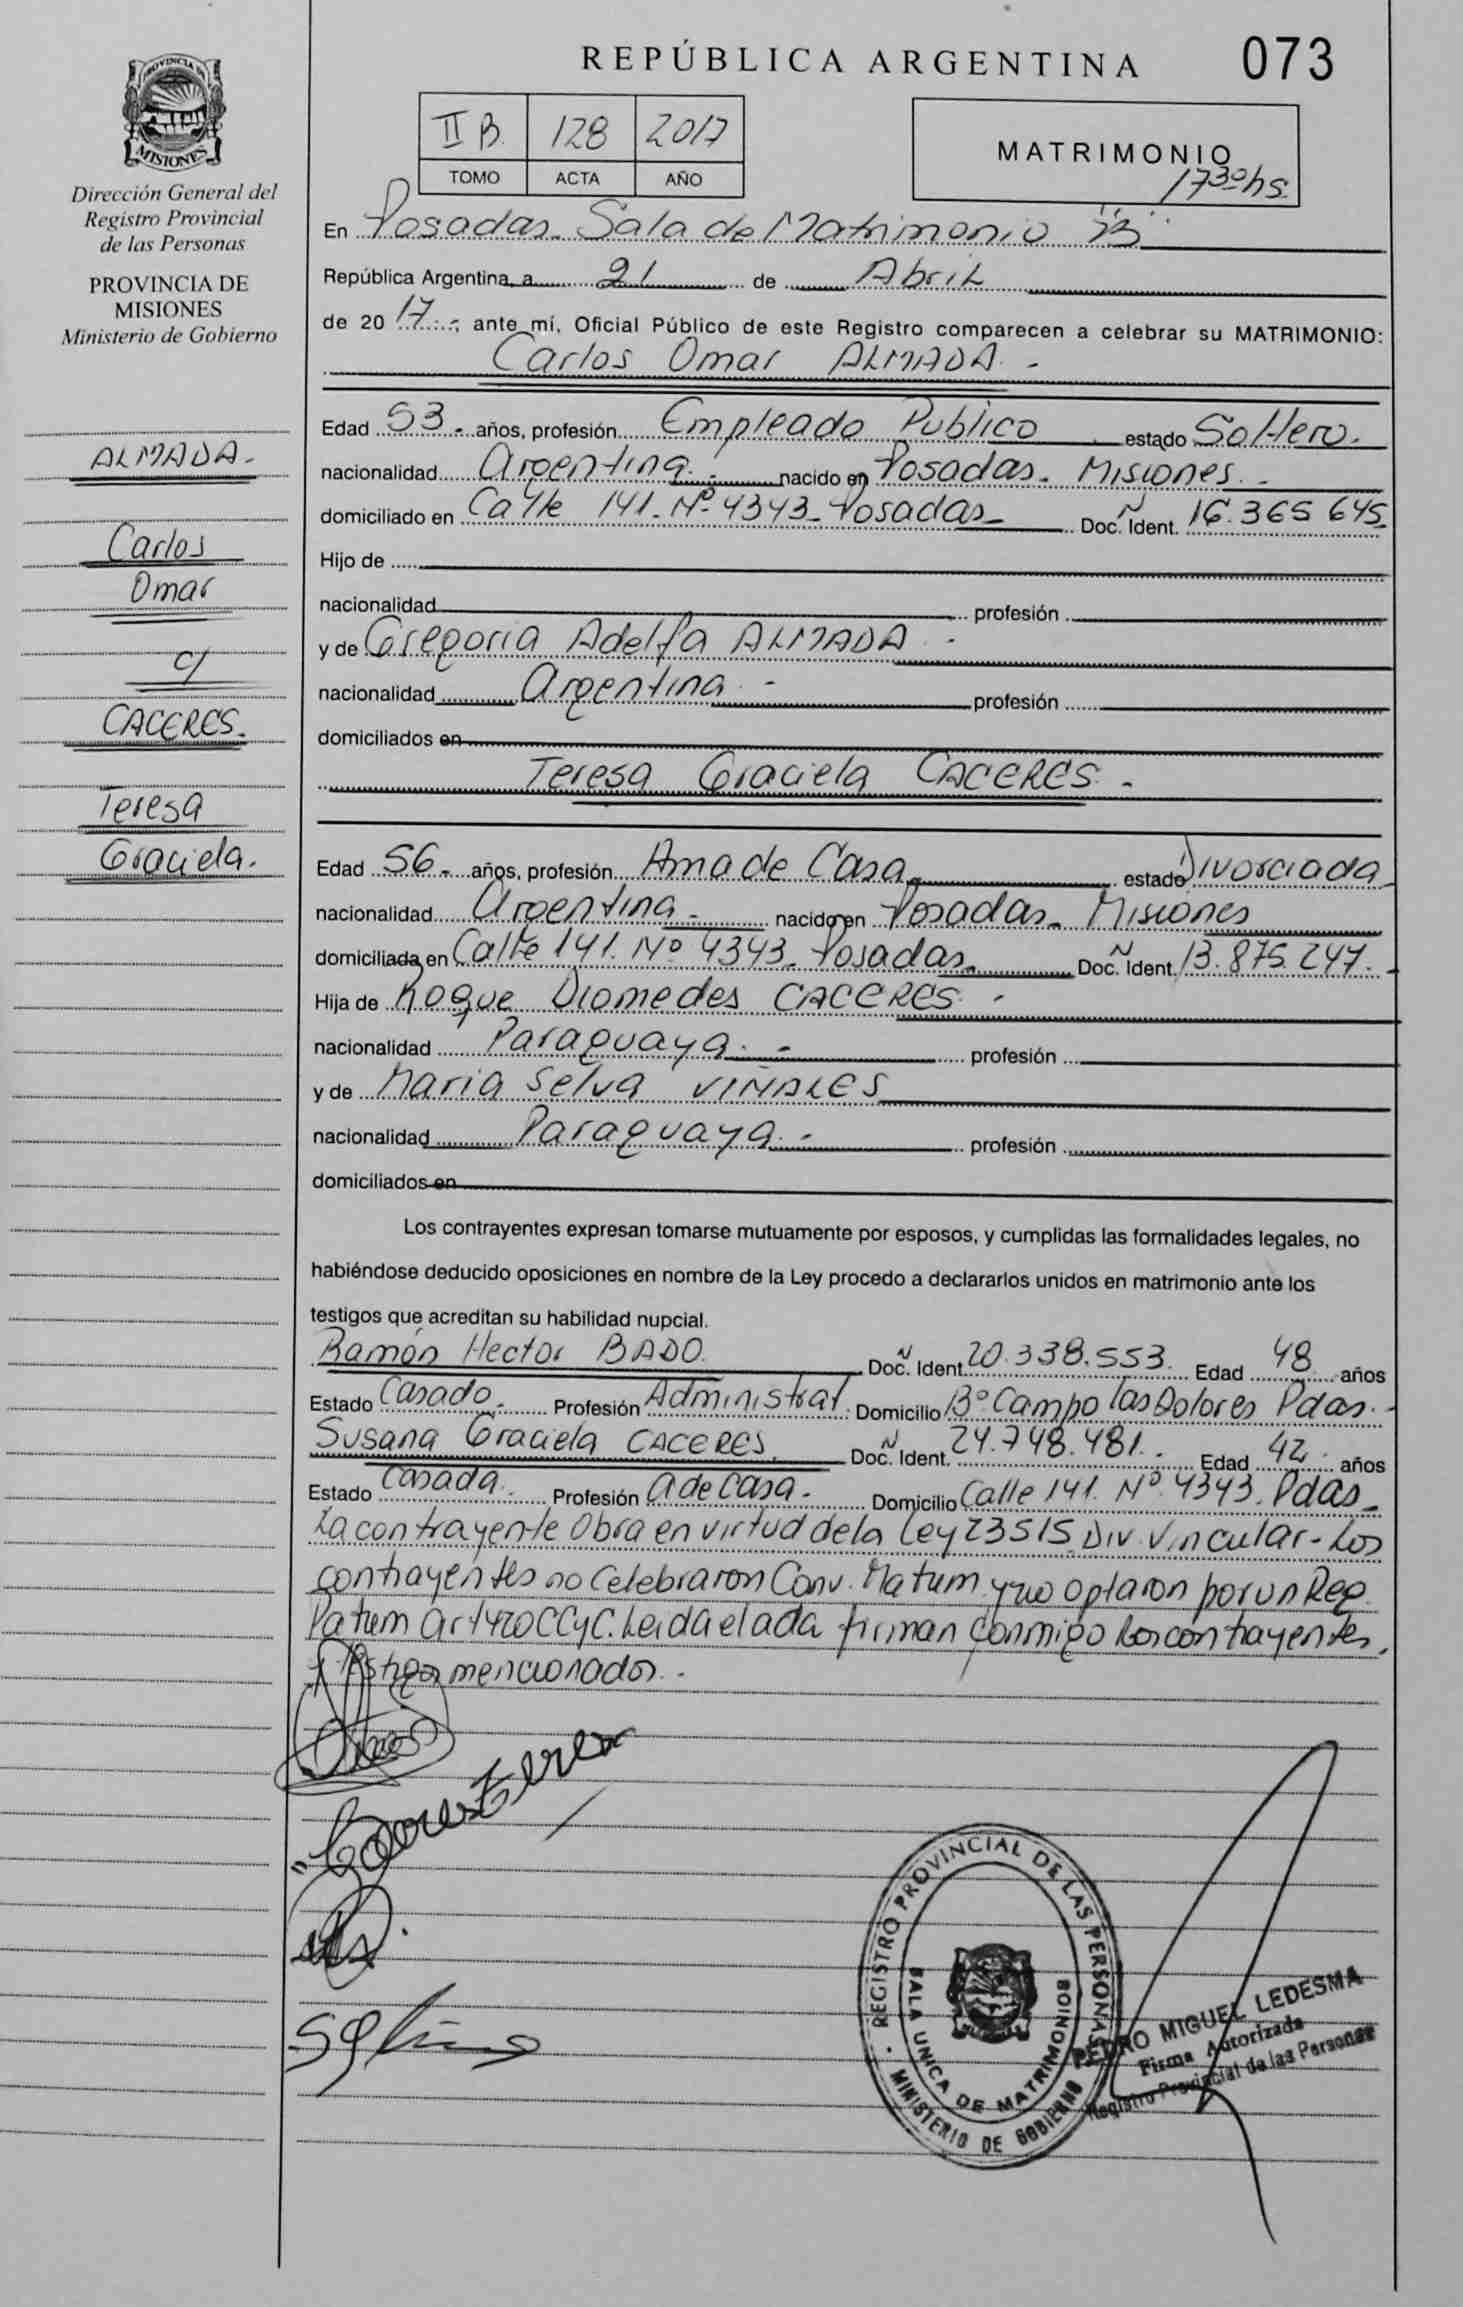 REPÚBLICA ARGENTINA 073
PROVINCIA DE
MISIONES
Dirección General del
Registro Provincial
de las Personas
PROVINCIA DE
MISIONES
Ministerio de Gobierno
ALMADA.-
Carlos
Omar
c/
CACERES.
Teresa
Graciela.
II B. 128 2017
TOMO ACTA AÑO
MATRIMONIO
17³⁰hs.
En Posadas. Sala de Matrimonio "B"
República Argentina, a 21 de Abril
de 2017.-, ante mí, Oficial Público de este Registro comparecen a celebrar su MATRIMONIO:
Carlos Omar ALMADA.-
Edad 53.- años, profesión Empleado Publico estado Soltero.
nacionalidad Argentina.- nacido en Posadas. Misiones.-
domiciliado en Calle 141. Nº 4343. Posadas Doc. Ident. 16.365.645.
Hijo de
nacionalidad profesión
y de Gregoria Adelfa ALMADA.-
nacionalidad Argentina.- profesión
domiciliados en
Teresa Graciela CACERES.-
Edad 56.- años, profesión Ama de Casa estado Divorciada
nacionalidad Argentina.- nacido en Posadas. Misiones
domiciliada en Calle 141. Nº 4343. Posadas. Doc. Ident. 13.875.247.-
Hija de Roque Diomedes CACERES.-
nacionalidad Paraguaya.- profesión
y de Maria Selva VIÑALES
nacionalidad Paraguaya.- profesión
domiciliados en
Los contrayentes expresan tomarse mutuamente por esposos, y cumplidas las formalidades legales, no
habiéndose deducido oposiciones en nombre de la Ley procedo a declararlos unidos en matrimonio ante los
testigos que acreditan su habilidad nupcial.
Ramón Hector BADO. Doc. Ident. 20.338.553. Edad 48 años
Estado Casado.- Profesión Administrat. Domicilio Bº Campo las Dolores Pdas.-
Susana Graciela CACERES. Doc. Ident. 24.748.481. Edad 42 años
Estado Casada.- Profesión A de Casa.- Domicilio Calle 141. Nº 4343. Pdas
La contrayente Obra en virtud de la Ley 23515. Div. Vincular- Los
contrayentes no celebraron Conv. Matrim. y no optaron por un Reg.
Patrim art 420 CCyC. Leida el acta firman conmigo los contrayentes,
y testigos mencionados.-
REGISTRO PROVINCIAL DE LAS PERSONAS
SALA UNICA DE MATRIMONIOS
MINISTERIO DE GOBIERNO
PEDRO MIGUEL LEDESMA
Firma Autorizada
Registro Provincial de las Personas